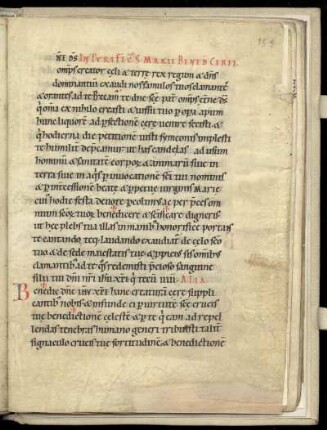 ne ds. In purif. s. Marie bened. cerei.
omps creator celi & terre rex regum & dns
dominantiu exaudi nos famulos tuos clamantes
& orantes ad te. Precamur te dne sce pat omps eterne ds
q omia ex nihilo creasti & iussu tuo p opa apum
hunc liquore ad pfectione cerei venire fecisti. & 
q hodierna die petitione iusti symeonis implesti
te humilit deprecamur ut has candelas ad usum
hominu & sanitate corporu & animaru siue in
terra siue in aqs p inuocatione sci tui nominis
& p intercessione beate & ppetue uirginis Marie
cui hodie festa deuote peolimus ac per preces omniu
scoru tuoru benedicere & scificare digneris
ut hec plebs tua illas in manibus honorifice portans
te cantando teq; laudando exaudias de celo sco
tuo & de sede maiestatis tue & ppicius sis omibus
clamantibus ad te qs redemisti precioso sanguine
filii tui dni nri ihu xpi q tecu uiu. Alia.
Benedic dne ihu xpe hanc creatura cerei suppli
cantibus nobis & infunde ei p uirtute sce crucis
tue benedictione celeste & p te qui eam ad repel
lendas tenebras humano generi tribuisti tale
signaculo crucis tue fortitudine & benedictione